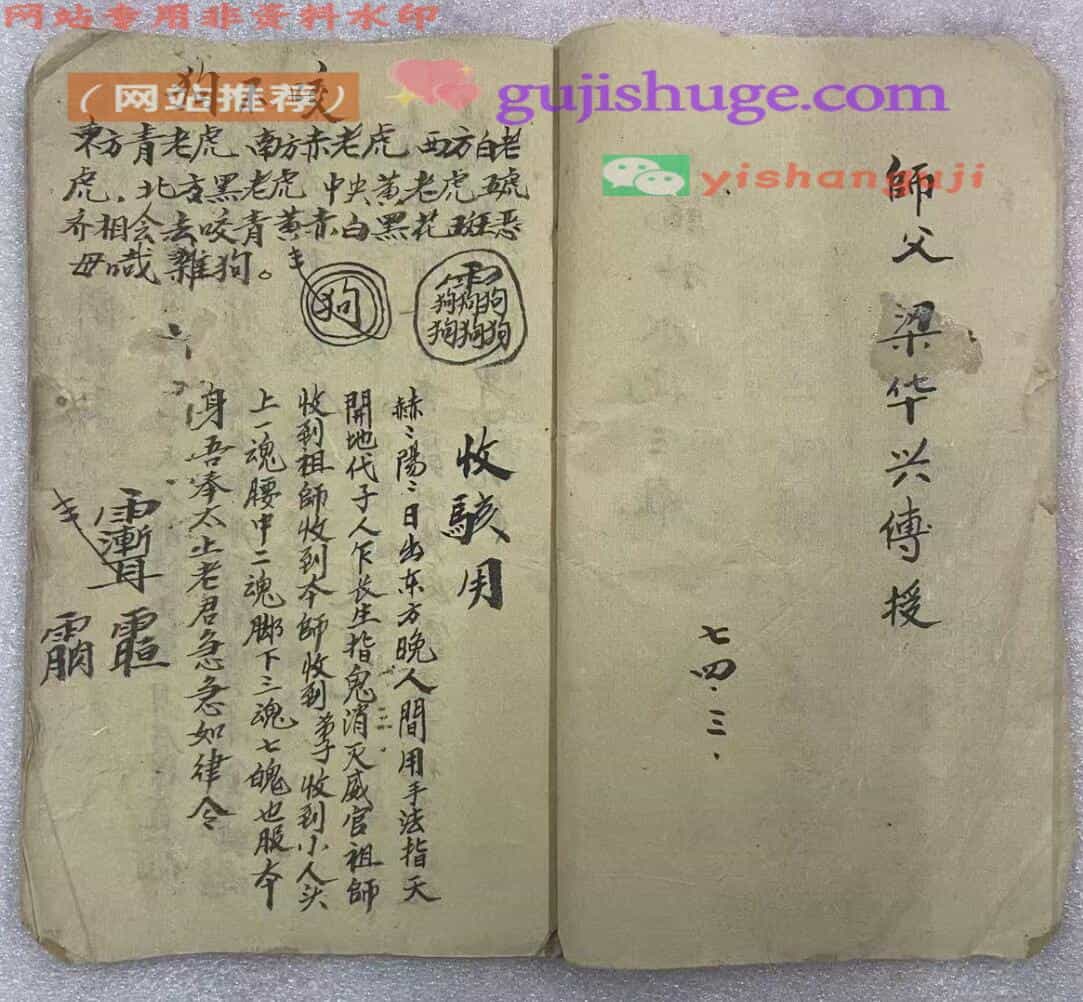 网站专用非资料水印
（网站推荐）
gujishuge.com
yishanguji
狗 咬
東方青老虎 南方赤老虎 西方白老
虎，北方黑老虎 中央黄老虎 五虎
齐相会去咬青黄赤白黑花斑恶
毋哦雜狗。
狗
狗狗狗
狗狗狗
收駭用
赫〻陽〻日出东方晚人間用手法指天
開地代子人乍长生指鬼消灭威官祖師
三
收到祖師收到本師收到弟子收到小人头
上一魂腰中二魂脚下三魂七魄也服本
身吾奉太上老君急急如律令
師父梁华兴傳授
七四.三.